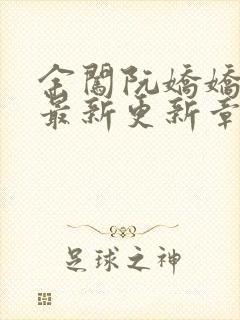 金闕阮嬌嬌
最新更新章
足球之神